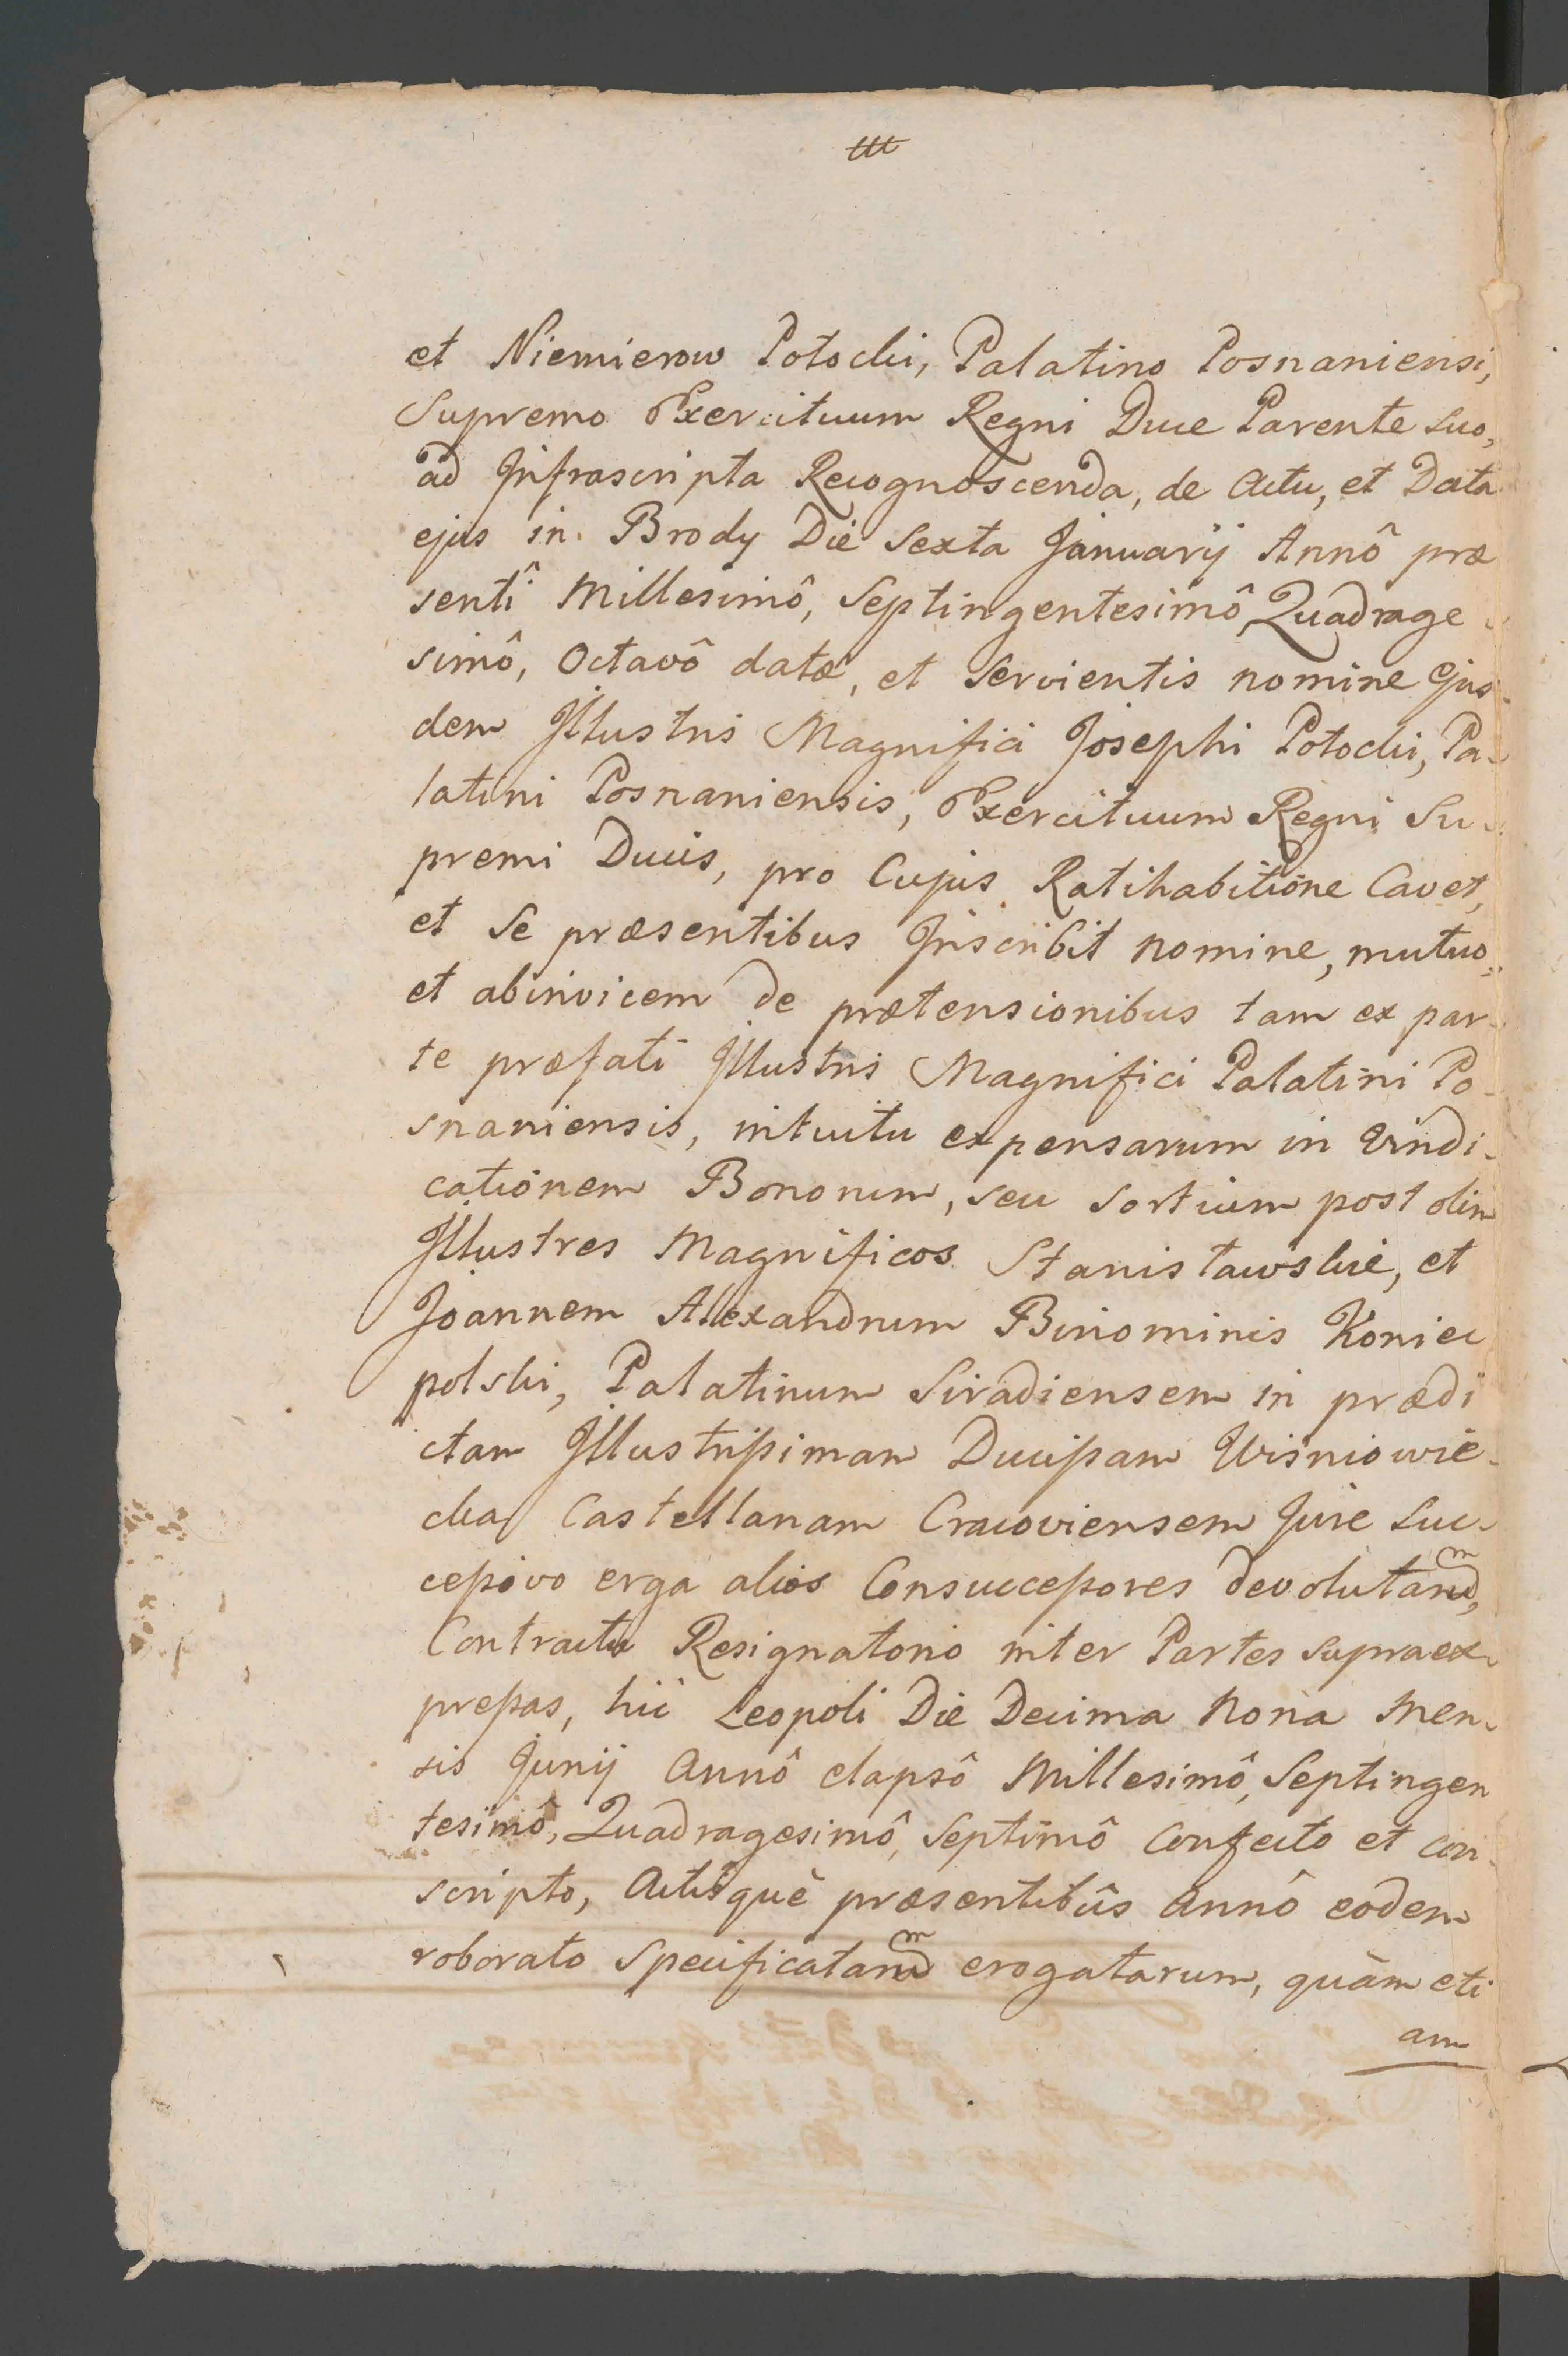 et Niemierow Potocki, Palatino Posnaniensi,
Supremo Exercituum Regni Duce Parente Suo,
ad Infrascripta Recognoscenda, de Actu, et Data
ejus in Brody Die Sexta Januarij Annô præ
senti Millesimô, Septingentesimô Quadrage
simô, Octavô datæ, et Servientis nomine Ejus-
dem Illustris Magnifici Josephi Potocki, Pa-
latini Posnaniensis, Exercituum Regni Su-
premi Ducis, pro Cujus Ratihabitione Cavet,
et Se præsentibus Inscribit nomine, mutuo,
et abinvicem de prætensionibus tam ex par-
te præfati Illustris Magnifici Palatini Po-
snaniensis, intuitu expensarum in Vindi-
cationem Bonorum, seu Sortium post olim
Illustres Magnificos Stanisławskie, et
Joannem Alexandrum Binominis Koniec
polski, Palatinum Siradiensem in prædi
ctam Illustrissimam Ducissam Wisniowie-
cka Castellanam Cracoviensem Jure Suc-
cessivo erga alios Consuccessores devolutarum,
Contractu Resignatorio inter Partes Supraex-
pressas, hic Leopoli Die Decima Nona Men-
sis Junij Annô elapsô Millesimô, Septingen
tesimô, Quadragesimô, Septimô Confecto et con-
scripto, Actisquè præsentibûs Annô eodem
roborato Specificatarum erogatarum, quàm eti
am